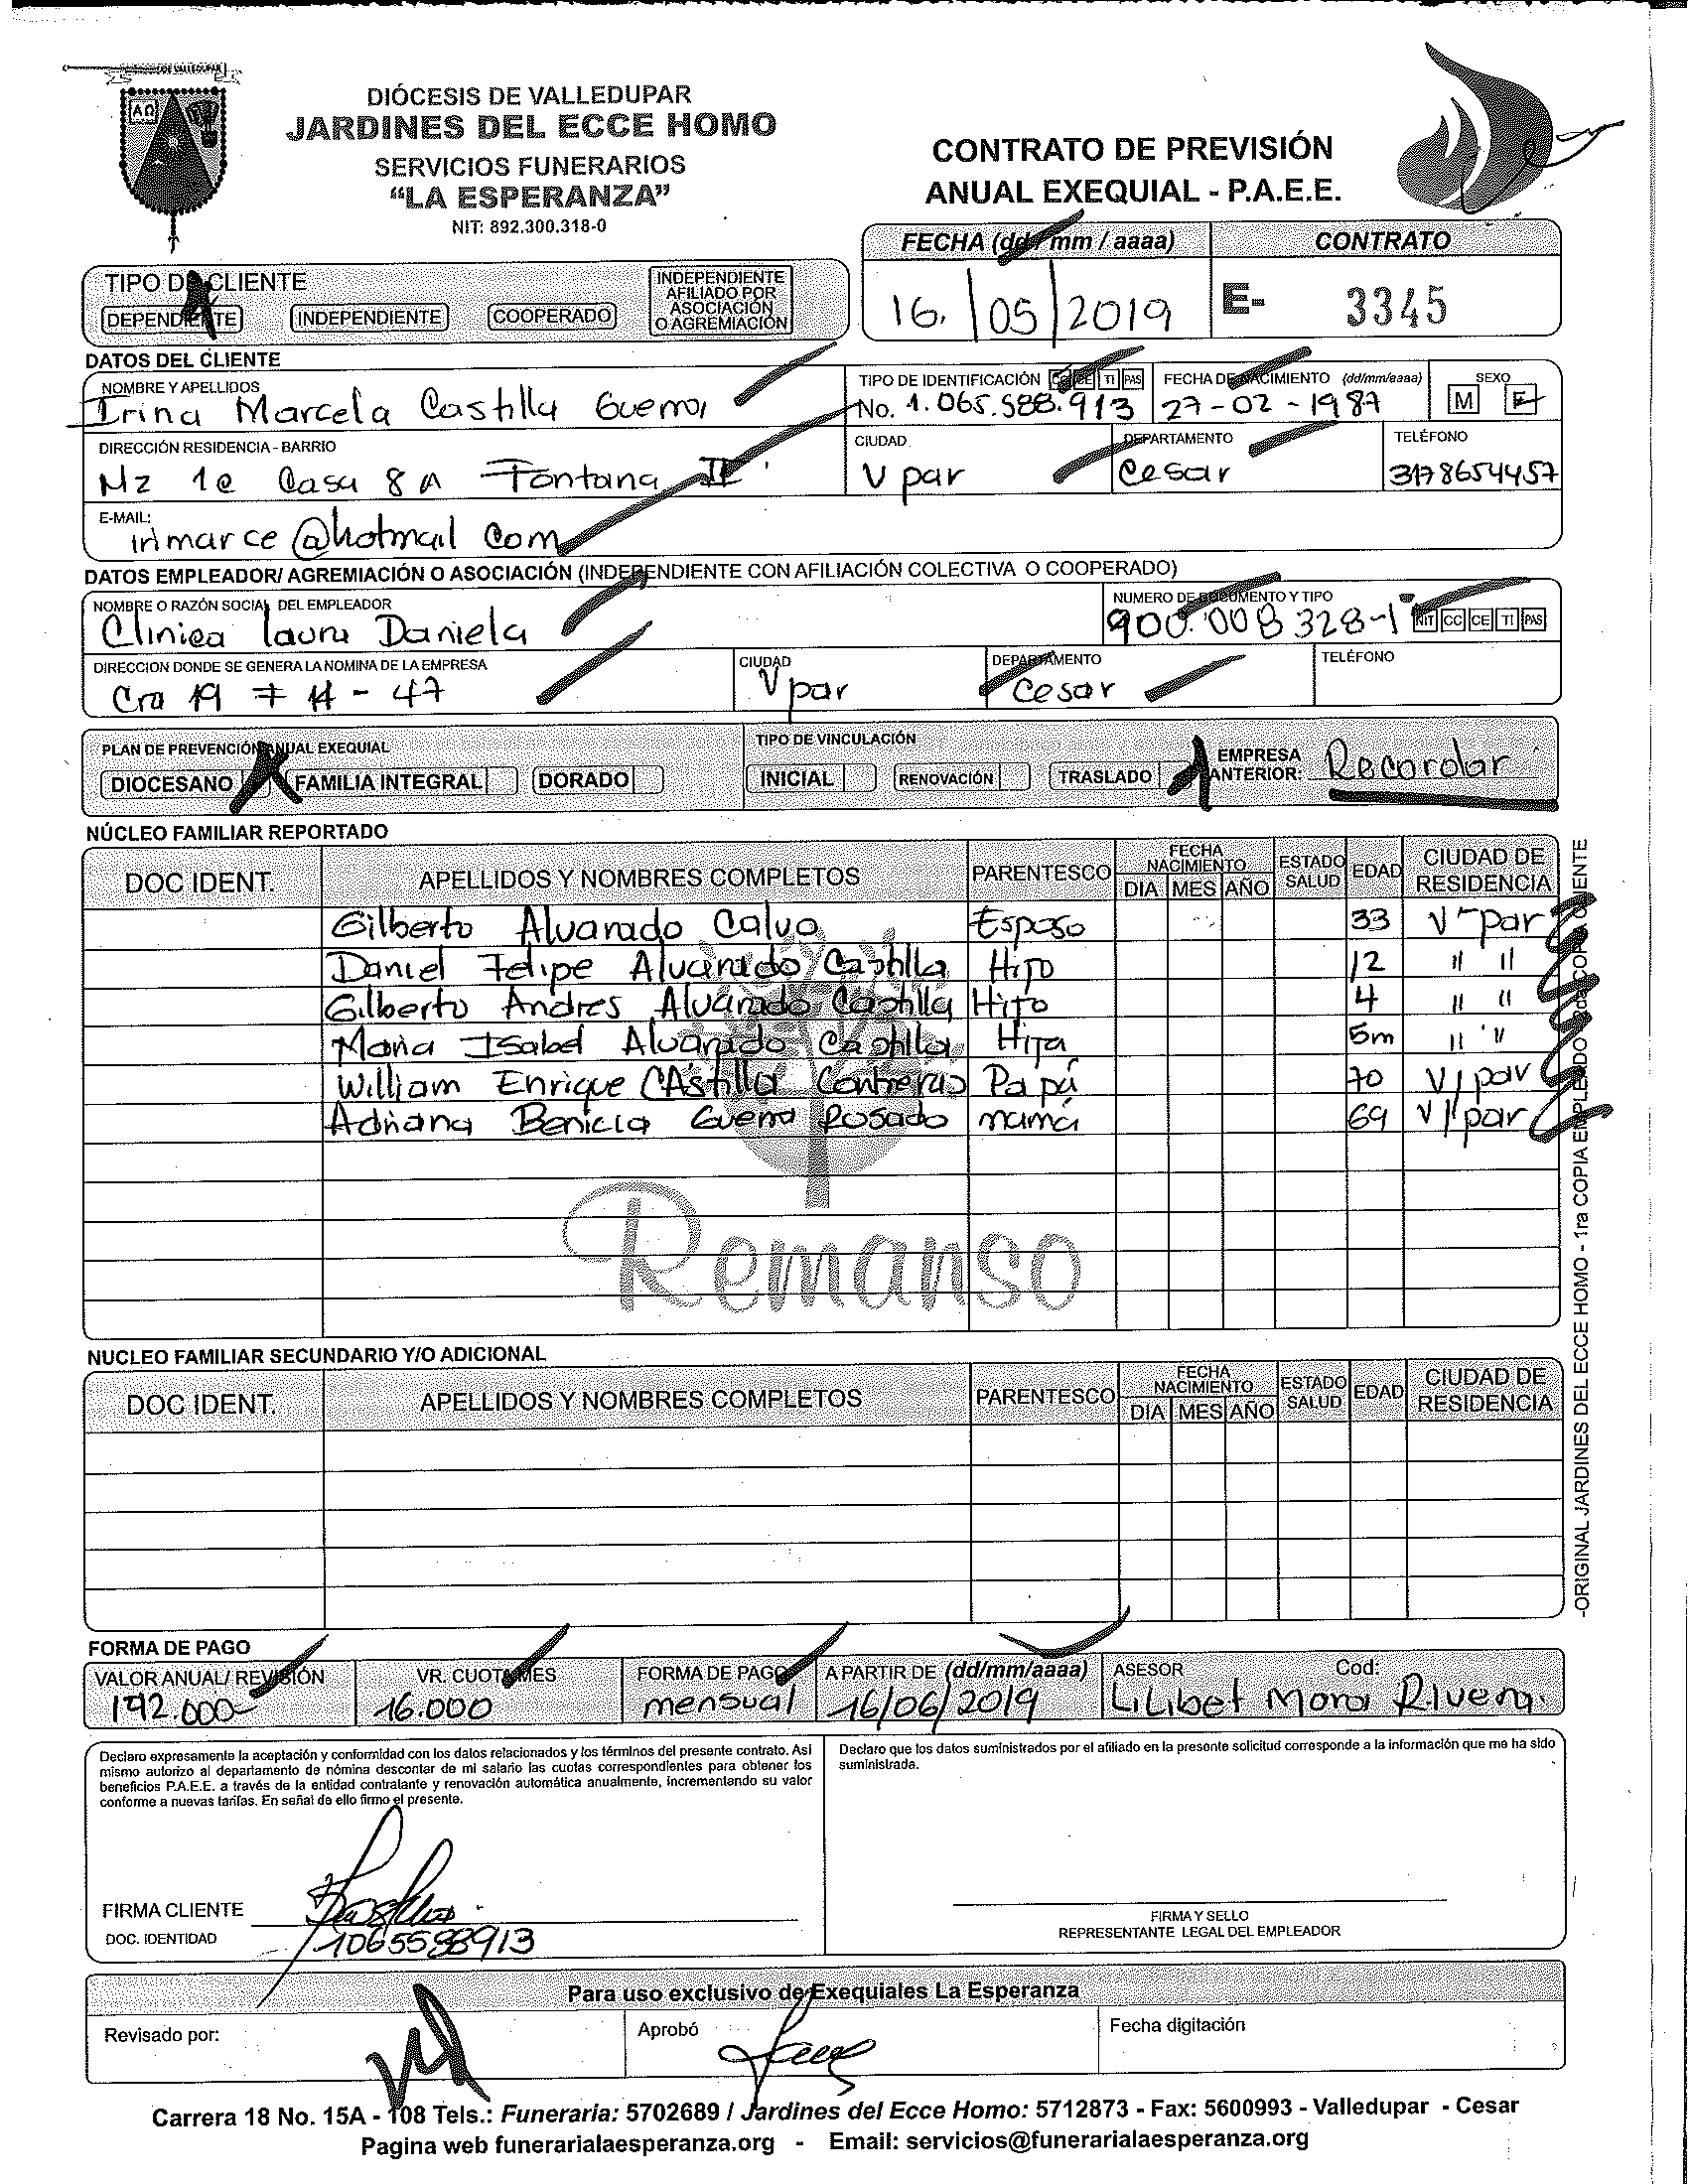 DE VALLEDUPAR
ΑΩ
DIÓCESIS DE VALLEDUPAR
JARDINES DEL ECCE HOMO
SERVICIOS FUNERARIOS
“LA ESPERANZA”
NIT: 892.300.318-0
CONTRATO DE PREVISIÓN
ANUAL EXEQUIAL - P.A.E.E.
FECHA (dd/ mm / aaaa) CONTRATO
16. 05 2019 E- 3345
TIPO DE CLIENTE
DEPENDIENTE INDEPENDIENTE COOPERADO INDEPENDIENTE AFILIADO POR ASOCIACIÓN O AGREMIACIÓN
DATOS DEL CLIENTE
NOMBRE Y APELLIDOS TIPO DE IDENTIFICACIÓN CC CE TI PAS FECHA DE NACIMIENTO (dd/mm/aaaa) SEXO
Irina Marcela Castilla Guerra No. 1.065.588.913 27-02-1987 M F
DIRECCIÓN RESIDENCIA - BARRIO CIUDAD DEPARTAMENTO TELÉFONO
Mz 1e Casa 8 A Fontana II V par Cesar 3178654457
E-MAIL:
irimarce@hotmail com
DATOS EMPLEADOR/ AGREMIACIÓN O ASOCIACIÓN (INDEPENDIENTE CON AFILIACIÓN COLECTIVA O COOPERADO)
NOMBRE O RAZÓN SOCIAL DEL EMPLEADOR NUMERO DE DOCUMENTO Y TIPO
Clinica laura Daniela 900.008 328-1 NIT CC CE TI PAS
DIRECCION DONDE SE GENERA LA NOMINA DE LA EMPRESA CIUDAD DEPARTAMENTO TELÉFONO
Cra 19 # 14 - 47 Vpar Cesar
PLAN DE PREVENCIÓN ANUAL EXEQUIAL TIPO DE VINCULACIÓN
DIOCESANO X FAMILIA INTEGRAL DORADO INICIAL RENOVACIÓN TRASLADO X EMPRESA ANTERIOR: Recordar
NÚCLEO FAMILIAR REPORTADO
DOC IDENT. APELLIDOS Y NOMBRES COMPLETOS PARENTESCO FECHA NACIMIENTO DIA MES AÑO ESTADO SALUD EDAD CIUDAD DE RESIDENCIA
Gilberto Alvarado Calvo Esposo 33 V-par
Daniel Felipe Alvarado Castilla Hijo 12 " "
Gilberto Andres Alvarado Castilla Hijo 4 " "
Maria Isabel Alvarado Castilla Hija 5m " "
William Enrique CAstilla Contreras Papá 70 V/par
Adriana Benicia Guerra Rosado mamá 69 V/par
Remanso
NUCLEO FAMILIAR SECUNDARIO Y/O ADICIONAL
DOC IDENT. APELLIDOS Y NOMBRES COMPLETOS PARENTESCO FECHA NACIMIENTO DIA MES AÑO ESTADO SALUD EDAD CIUDAD DE RESIDENCIA
-ORIGINAL JARDINES DEL ECCE HOMO - 1ra COPIA EMPLEADO 2da COPIA CLIENTE
FORMA DE PAGO
VALOR ANUAL/ REVISIÓN VR. CUOTA MES FORMA DE PAGO A PARTIR DE (dd/mm/aaaa) ASESOR Cod:
192.000- 16.000 mensual 16/06/2019 LiLibet Mora Rivera.
Declaro expresamente la aceptación y conformidad con los datos relacionados y los términos del presente contrato. Así
mismo autorizo al departamento de nómina descontar de mi salario las cuotas correspondientes para obtener los
beneficios P.A.E.E. a través de la entidad contratante y renovación automática anualmente, incrementando su valor
conforme a nuevas tarifas. En señal de ello firmo el presente.
Declaro que los datos suministrados por el afiliado en la presente solicitud corresponde a la información que me ha sido
suministrada.
FIRMA CLIENTE
DOC. IDENTIDAD 1065588913
FIRMA Y SELLO
REPRESENTANTE LEGAL DEL EMPLEADOR
Para uso exclusivo de Exequiales La Esperanza
Revisado por: Aprobó Fecha digitación
Carrera 18 No. 15A - 108 Tels.: Funeraria: 5702689 / Jardines del Ecce Homo: 5712873 - Fax: 5600993 - Valledupar - Cesar
Pagina web funerarialaesperanza.org - Email: servicios@funerarialaesperanza.org